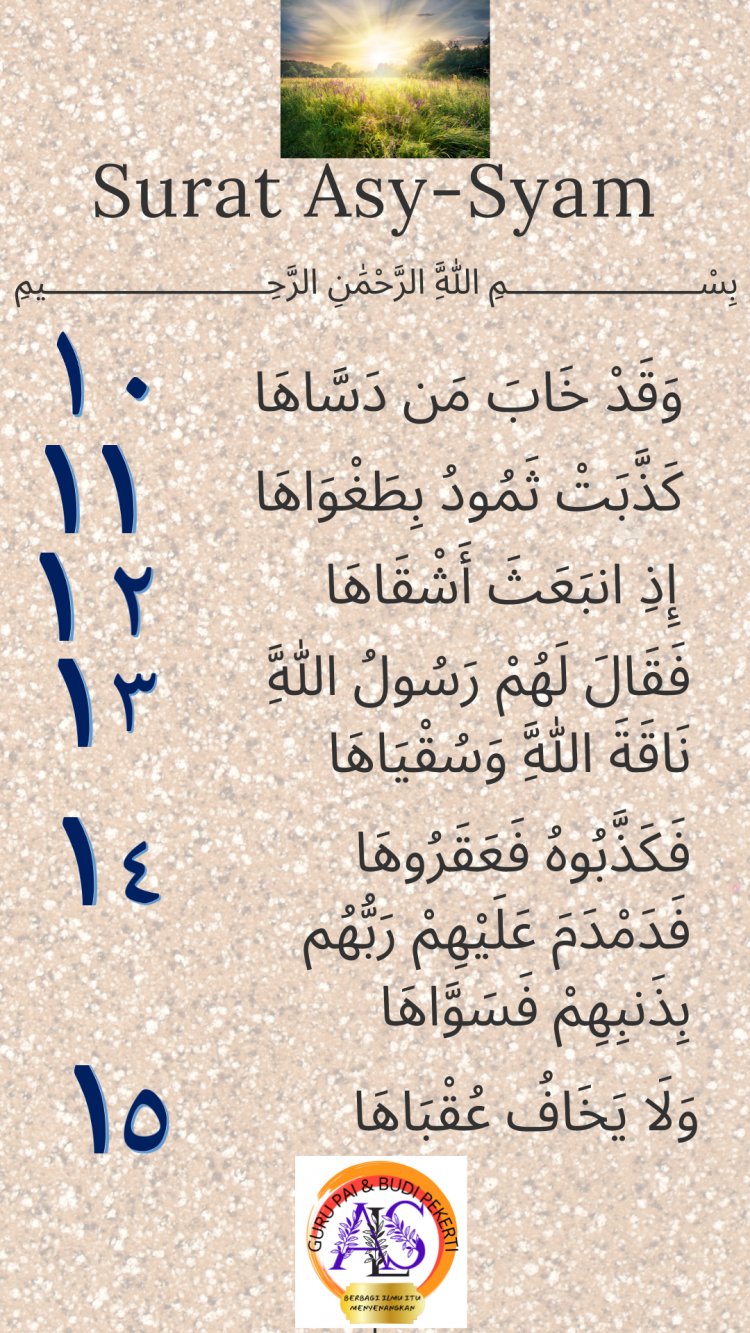 Surat Asy-Syam
بِسْـــــــــــــــمِ اللَّهِ الرَّحْمَٰنِ الرَّحِـــــــــــــــيمِ
١٠ وَقَدْ خَابَ مَن دَسَّاهَا
١١ كَذَّبَتْ ثَمُودُ بِطَغْوَاهَا
١٢ إِذِ انبَعَثَ أَشْقَاهَا
١٣ فَقَالَ لَهُمْ رَسُولُ اللَّهِ
نَاقَةَ اللَّهِ وَسُقْيَاهَا
١٤ فَكَذَّبُوهُ فَعَقَرُوهَا
فَدَمْدَمَ عَلَيْهِمْ رَبُّهُم
بِذَنبِهِمْ فَسَوَّاهَا
١٥ وَلَا يَخَافُ عُقْبَاهَا
GURU PAI & BUDI PEKERTI
ALS
BERBAGI ILMU ITU
MENYENANGKAN